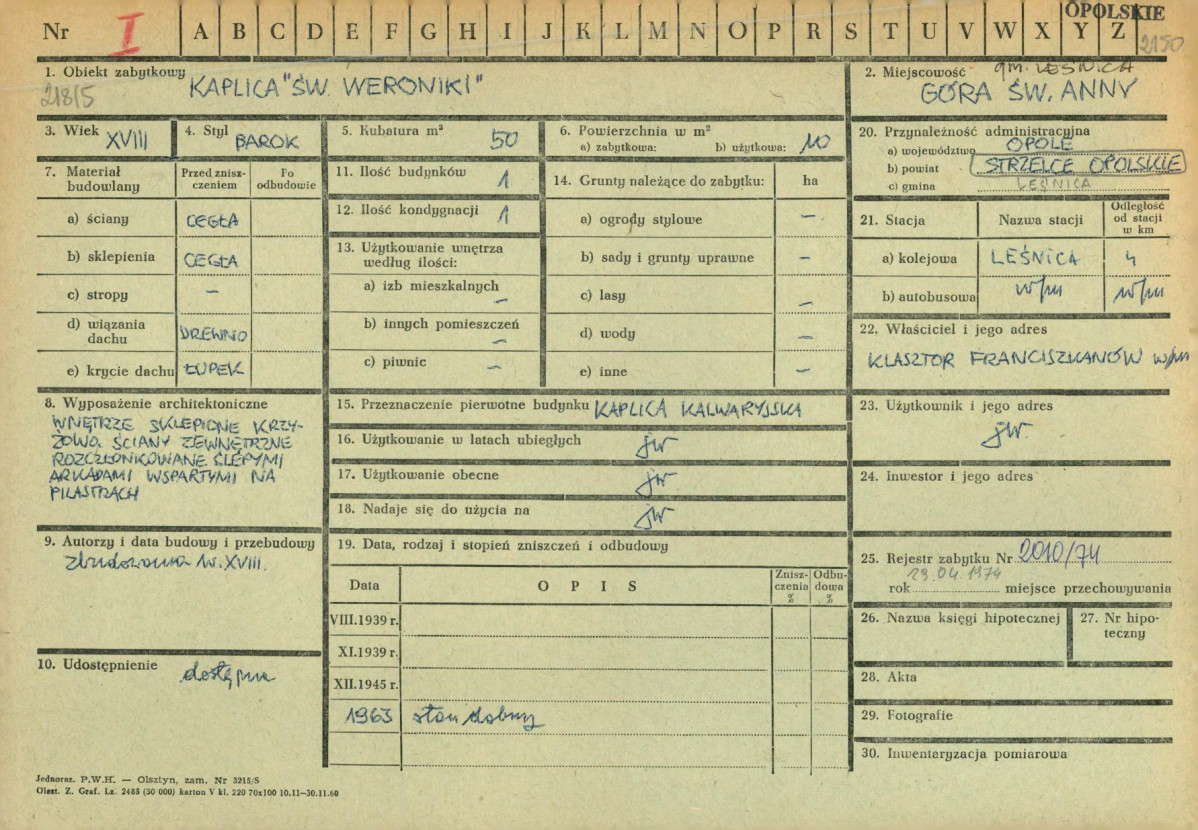 OPOLSKIE
Nr I A B C D E F G H I J K L M N O P R S T U V W X Y Z 2150
1. Obiekt zabytkowy KAPLICA "ŚW. WERONIKI"
2185
2. Miejscowość gm. LEŚNICA
GÓRA ŚW. ANNY
3. Wiek XVIII
4. Styl BAROK
5. Kubatura m³ 50
6. Powierzchnia w m²
a) zabytkowa: b) użytkowa: 10
7. Materiał budowlany
Przed znisz-
czeniem
Po
odbudowie
a) ściany CEGŁA
b) sklepienia CEGŁA
c) stropy –
d) wiązania
dachu DREWNO
e) krycie dachu ŁUPEK
8. Wyposażenie architektoniczne
WNĘTRZE SKLEPIONE KRZY-
ŻOWO. ŚCIANY ZEWNĘTRZNE
ROZCZŁONKOWANE ŚLEPYMI
ARKADAMI WSPARTYMI NA
PILASTRACH
9. Autorzy i data budowy i przebudowy
Zbudowana w. XVIII.
10. Udostępnienie dostępna
11. Ilość budynków 1
12. Ilość kondygnacji 1
13. Użytkowanie wnętrza
według ilości:
a) izb mieszkalnych –
b) innych pomieszczeń –
c) piwnic –
14. Grunty należące do zabytku: ha
a) ogrody stylowe –
b) sady i grunty uprawne –
c) lasy –
d) wody –
e) inne –
15. Przeznaczenie pierwotne budynku KAPLICA KALWARYJSKA
16. Użytkowanie w latach ubiegłych jw
17. Użytkowanie obecne jw
18. Nadaje się do użycia na jw
19. Data, rodzaj i stopień zniszczeń i odbudowy
Data OPIS
Znisz-
czenia
%
Odbu-
dowa
%
VIII.1939 r.
XI.1939 r.
XII.1945 r.
1963 stan dobry
20. Przynależność administracyjna
a) województwo OPOLE
b) powiat STRZELCE OPOLSKIE
c) gmina LEŚNICA
21. Stacja Nazwa stacji
Odległość
od stacji
w km
a) kolejowa LEŚNICA 4
b) autobusowa w/m w/m
22. Właściciel i jego adres
KLASZTOR FRANCISZKANÓW w/m
23. Użytkownik i jego adres
jw.
24. Inwestor i jego adres
25. Rejestr zabytku Nr 2010/74
29.04.1974
rok miejsce przechowywania
26. Nazwa księgi hipotecznej
27. Nr hipo-
teczny
28. Akta
29. Fotografie
30. Inwentaryzacja pomiarowa
Jednoraz. P.W.H. — Olsztyn, zam. Nr 3215/S
Olszt. Z. Graf. Lz. 2485 (30 000) karton V kl. 220 70x100 10.11—30.11.60